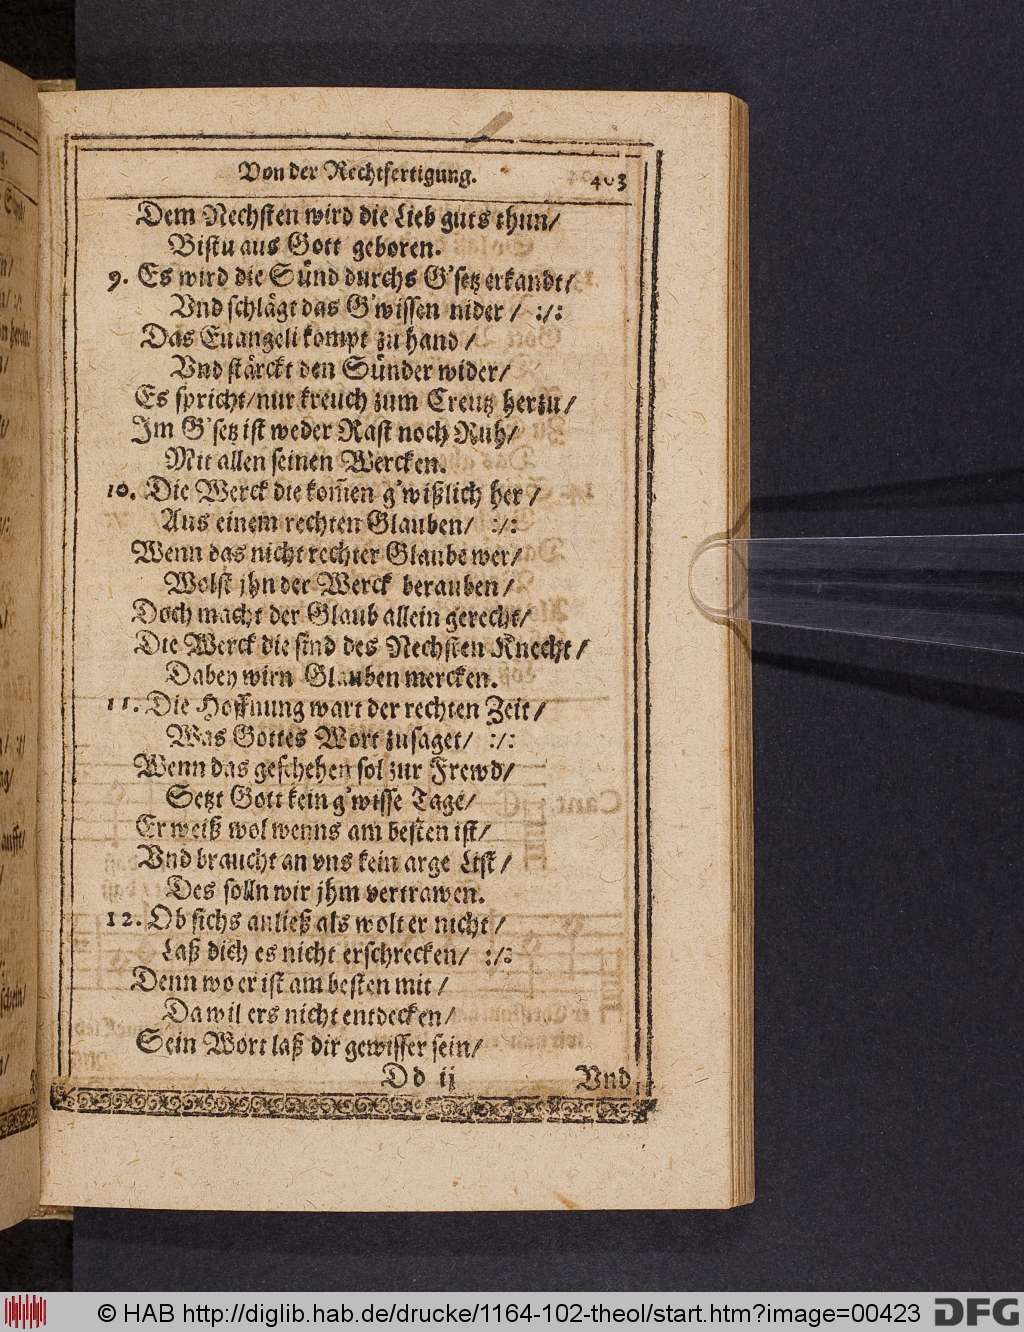 Von der Rechtfertigung. 403
Dem Nechsten wird die Lieb guts thun/
Bistu aus Gott geboren.
9. Es wird die Sünd durchs G'setz erkandt/
Vnd schlägt das G'wissen nider / :/:
Das Euangeli kompt zu hand /
Vnd stärckt den Sünder wider/
Es spricht/nur kreuch zum Creutz herzu/
Im G'setz ist weder Rast noch Ruh/
Mit allen seinen Wercken.
10. Die Werck die kom̃en g'wißlich her /
Aus einem rechten Glauben/ :/:
Wenn das nicht rechter Glaube wer/
Wolst jhn der Werck berauben /
Doch macht der Glaub allein gerecht/
Die Werck die sind des Nechsten Knecht /
Dabey wirn Glauben mercken.
11. Die Hoffnung wart der rechten Zeit /
Was Gottes Wort zusaget/ :/:
Wenn das geschehen sol zur Frewd/
Setzt Gott kein g'wisse Tage/
Er weiß wol wenns am besten ist/
Vnd braucht an vns kein arge List /
Des solln wir jhm vertrawen.
12. Ob sichs anließ als wolt er nicht /
Laß dich es nicht erschrecken/ :/:
Denn wo er ist am besten mit /
Da wil ers nicht entdecken/
Sein Wort laß dir gewisser sein/
Dd ij Vnd
© HAB http://diglib.hab.de/drucke/1164-102-theol/start.htm?image=00423 DFG